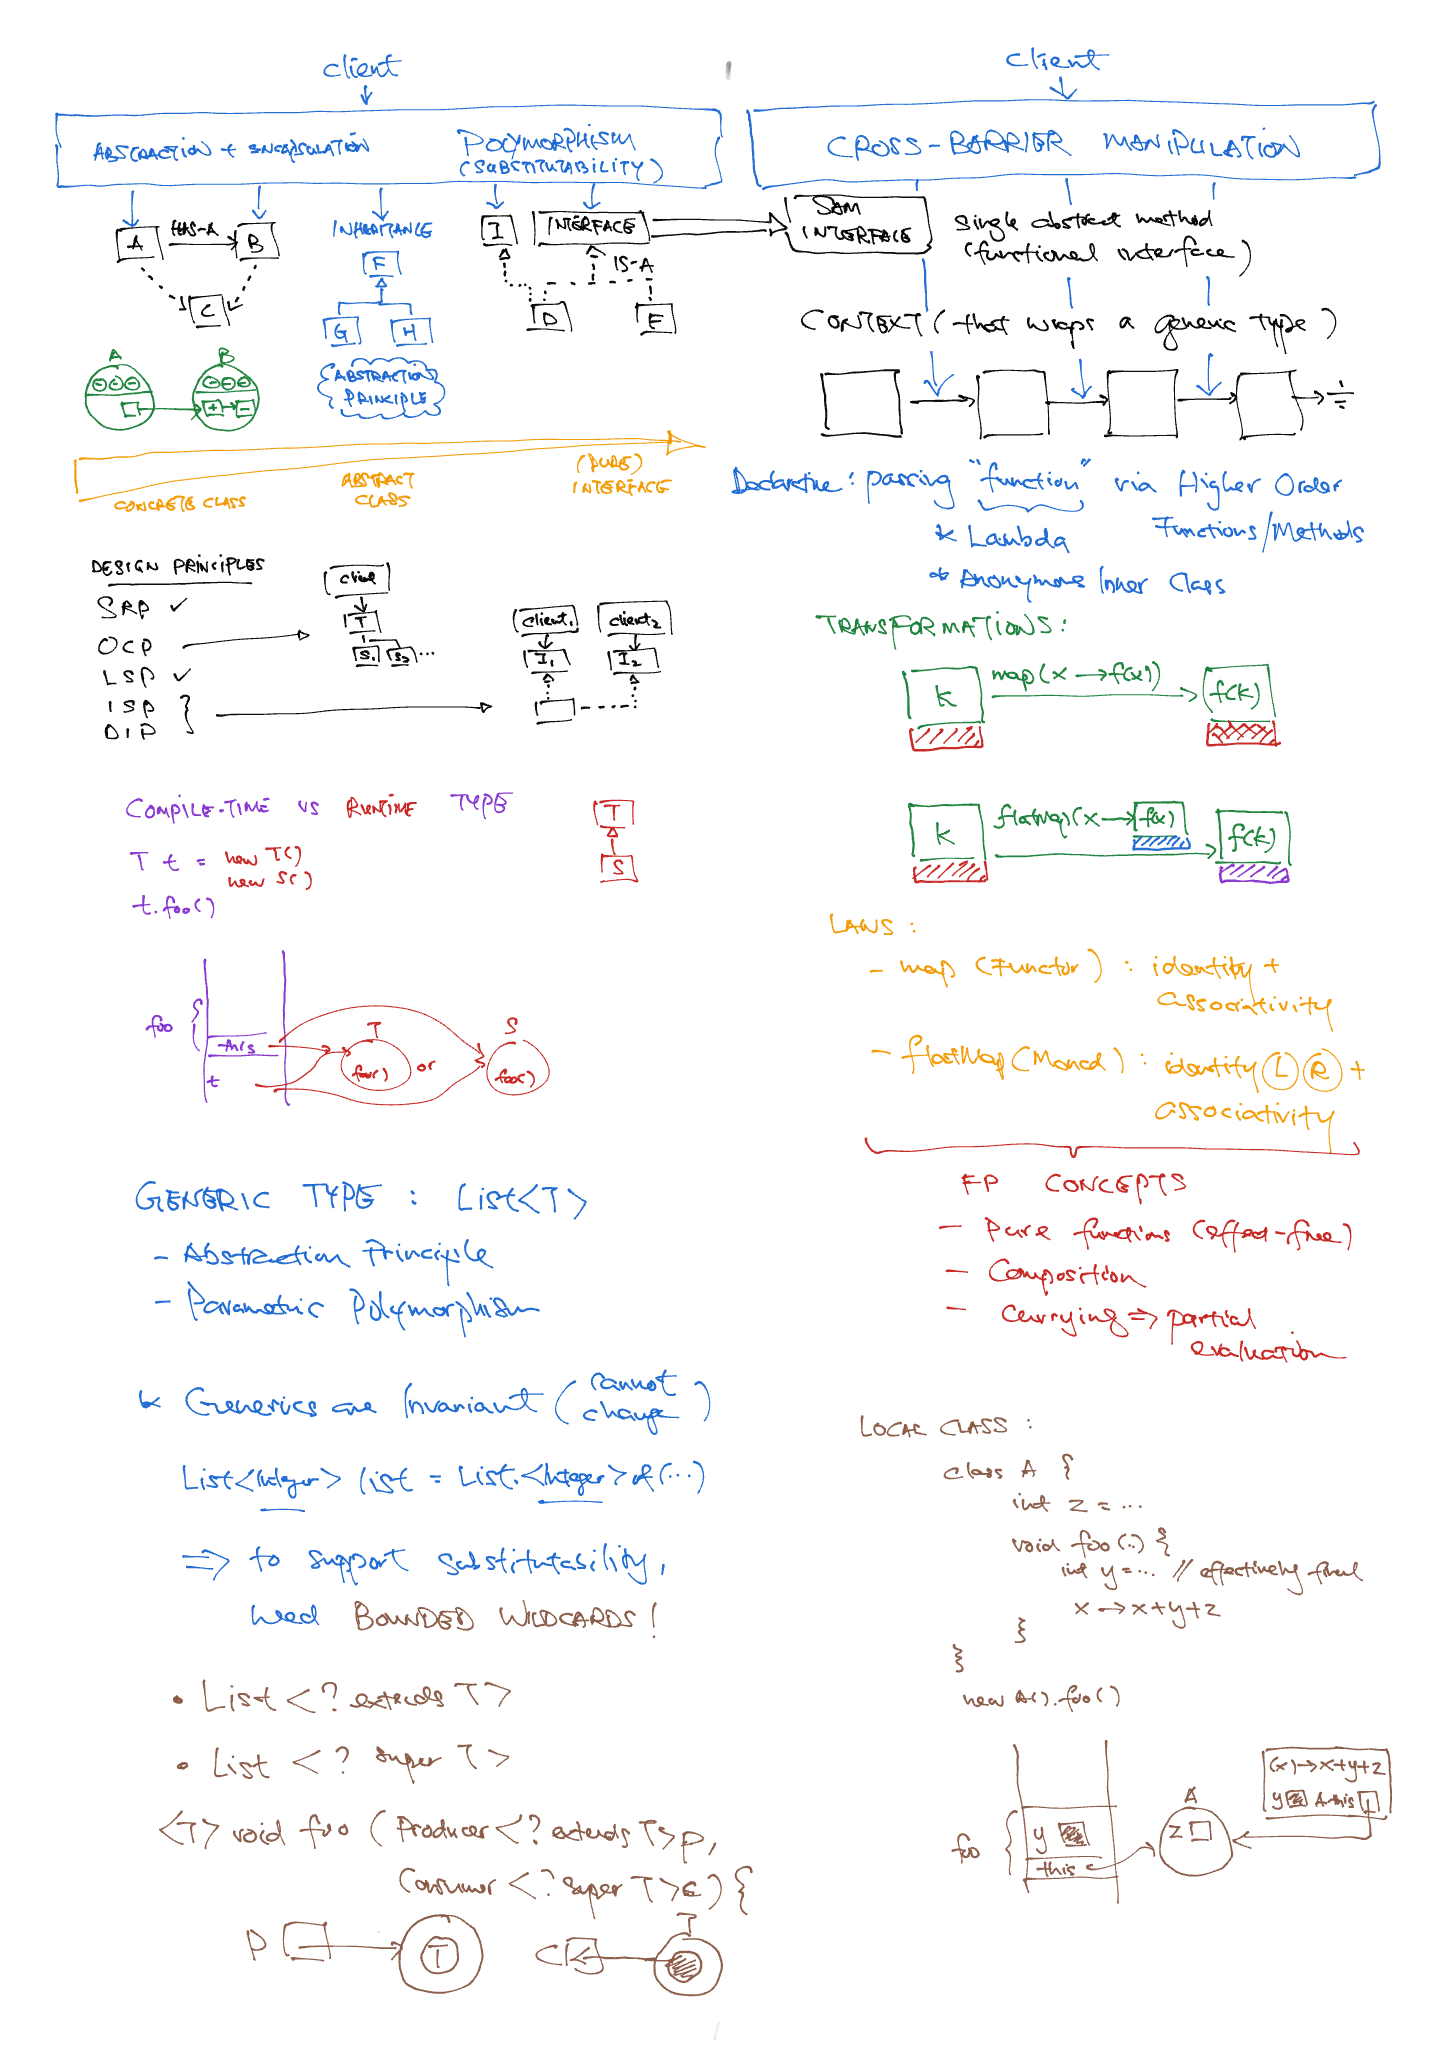 client
ABSTRACTION + ENCAPSULATION
POLYMORPHISM
(SUBSTITUTABILITY)
A
HAS-A
B
C
INHERITANCE
F
G
H
ABSTRACTION
PRINCIPLE
I
INTERFACE
IS-A
D
E
A
B
CONCRETE CLASS
ABSTRACT
CLASS
(PURE)
INTERFACE
DESIGN PRINCIPLES
SRP ✓
OCP
LSP ✓
ISP
DIP
client
T
S1
S2
...
client1
client2
I1
I2
COMPILE-TIME VS RUNTIME TYPE
T t = new T()
new S()
t.foo()
T
S
foo
this
t
T
foo()
or
S
foo()
GENERIC TYPE : List<T>
- Abstraction Principle
- Parametric Polymorphism
* Generics are Invariant (cannot
change)
List<Integer> list = List.<Integer>of(...)
=> to support substitutability,
need BOUNDED WILDCARDS!
• List <? extends T>
• List <? super T>
<T> void foo (Producer<? extends T> p,
Consumer <? super T> c) {
P
T
C
T
client
CROSS-BARRIER MANIPULATION
SAM
INTERFACE
Single abstract method
(functional interface)
CONTEXT (that wraps a generic type)
Declarative : passing "function" via Higher Order
Functions/Methods
* Lambda
* Anonymous Inner Class
TRANSFORMATIONS:
k
map(x → f(x))
f(k)
k
flatMap(x → f(x)
f(k)
LAWS :
- map (Functor) : identity +
associativity
- flatMap (Monad) : identity L R +
associativity
FP CONCEPTS
- Pure functions (effect-free)
- Composition
- Currying => partial
evaluation
LOCAL CLASS :
class A {
int z = ...
void foo(..) {
int y = ... // effectively final
x → x+y+z
}
}
new A().foo()
foo
y
this
A
z
(x) → x+y+z
y
A.this